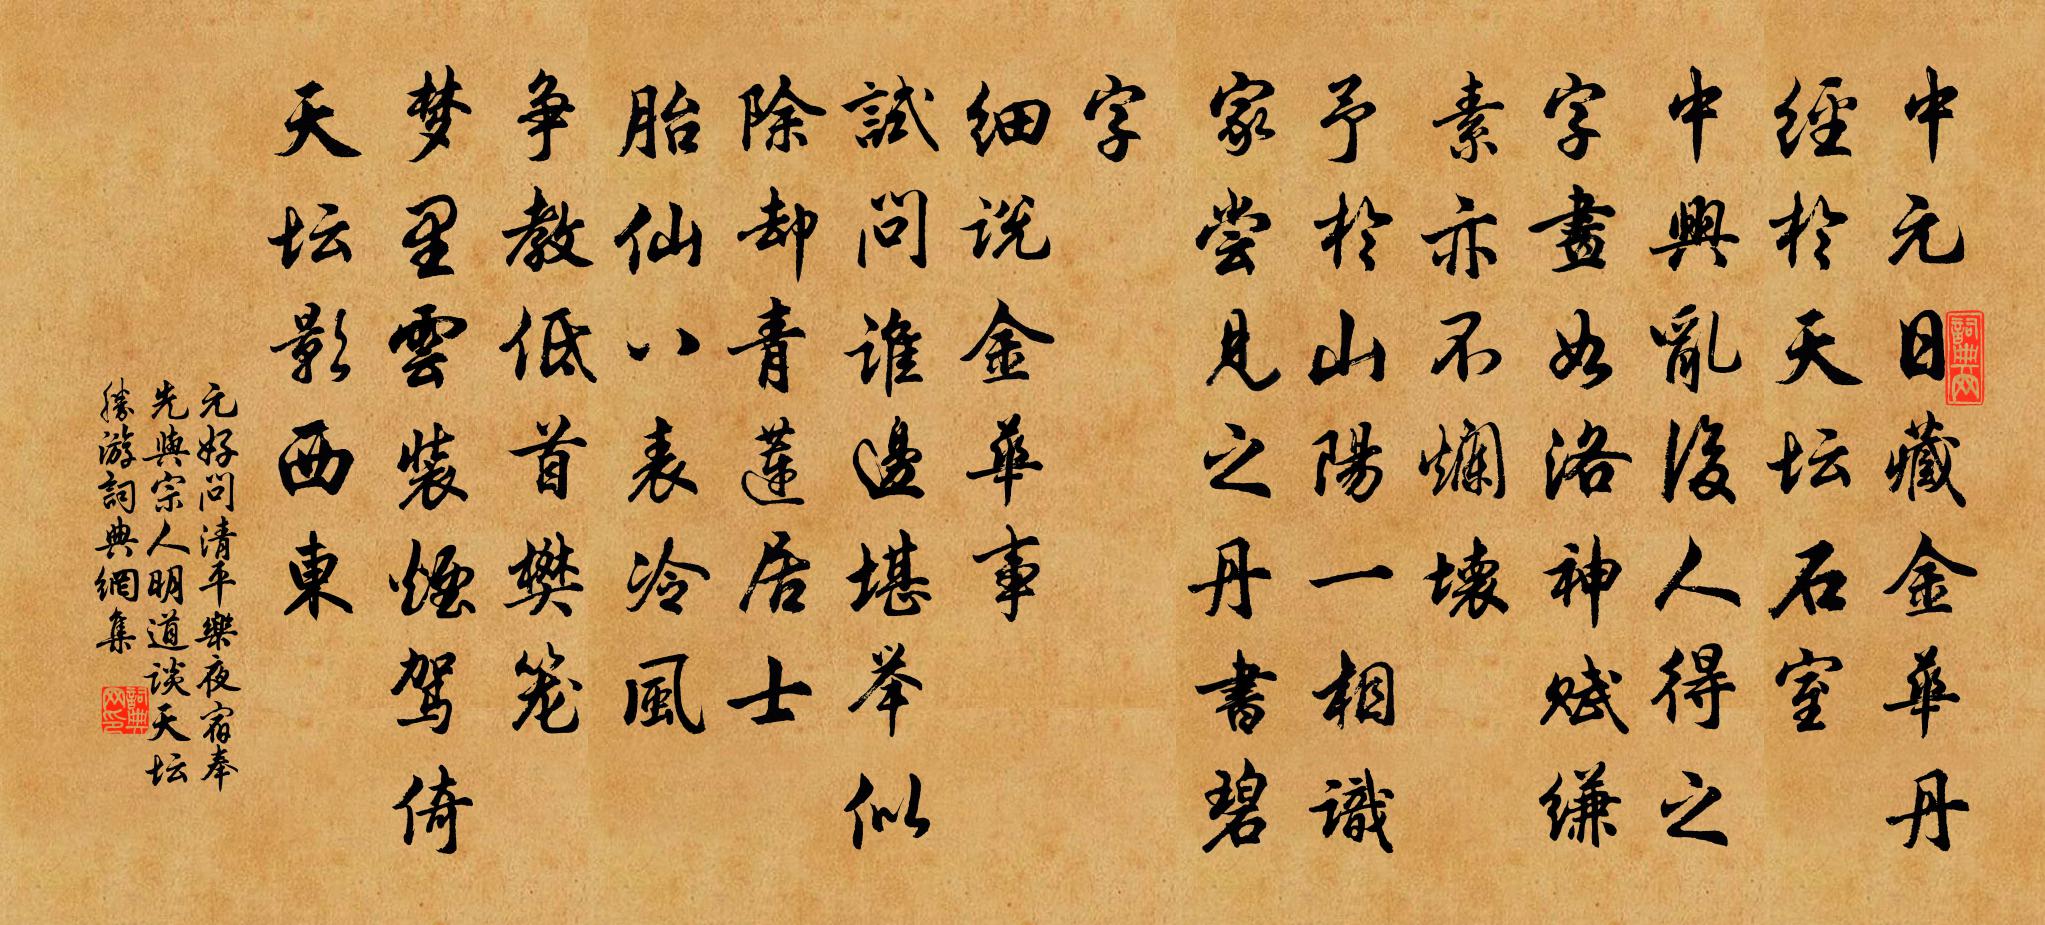 中元日藏金華丹
經於天坛石室
中興亂後人得之
字畫如洛神賦縑
素亦不爛壊
予於山陽一相識
家尝見之丹書碧
字
细说金華事
試問谁邊堪举似
除却青蓮居士
胎仙八表冷風
争教低首樊笼
梦里雲裝煙驾倚
天坛影西東
元好问清平樂夜宿奉
先與宗人明道谈天坛
勝游詞典網集
詞典网
詞典网印